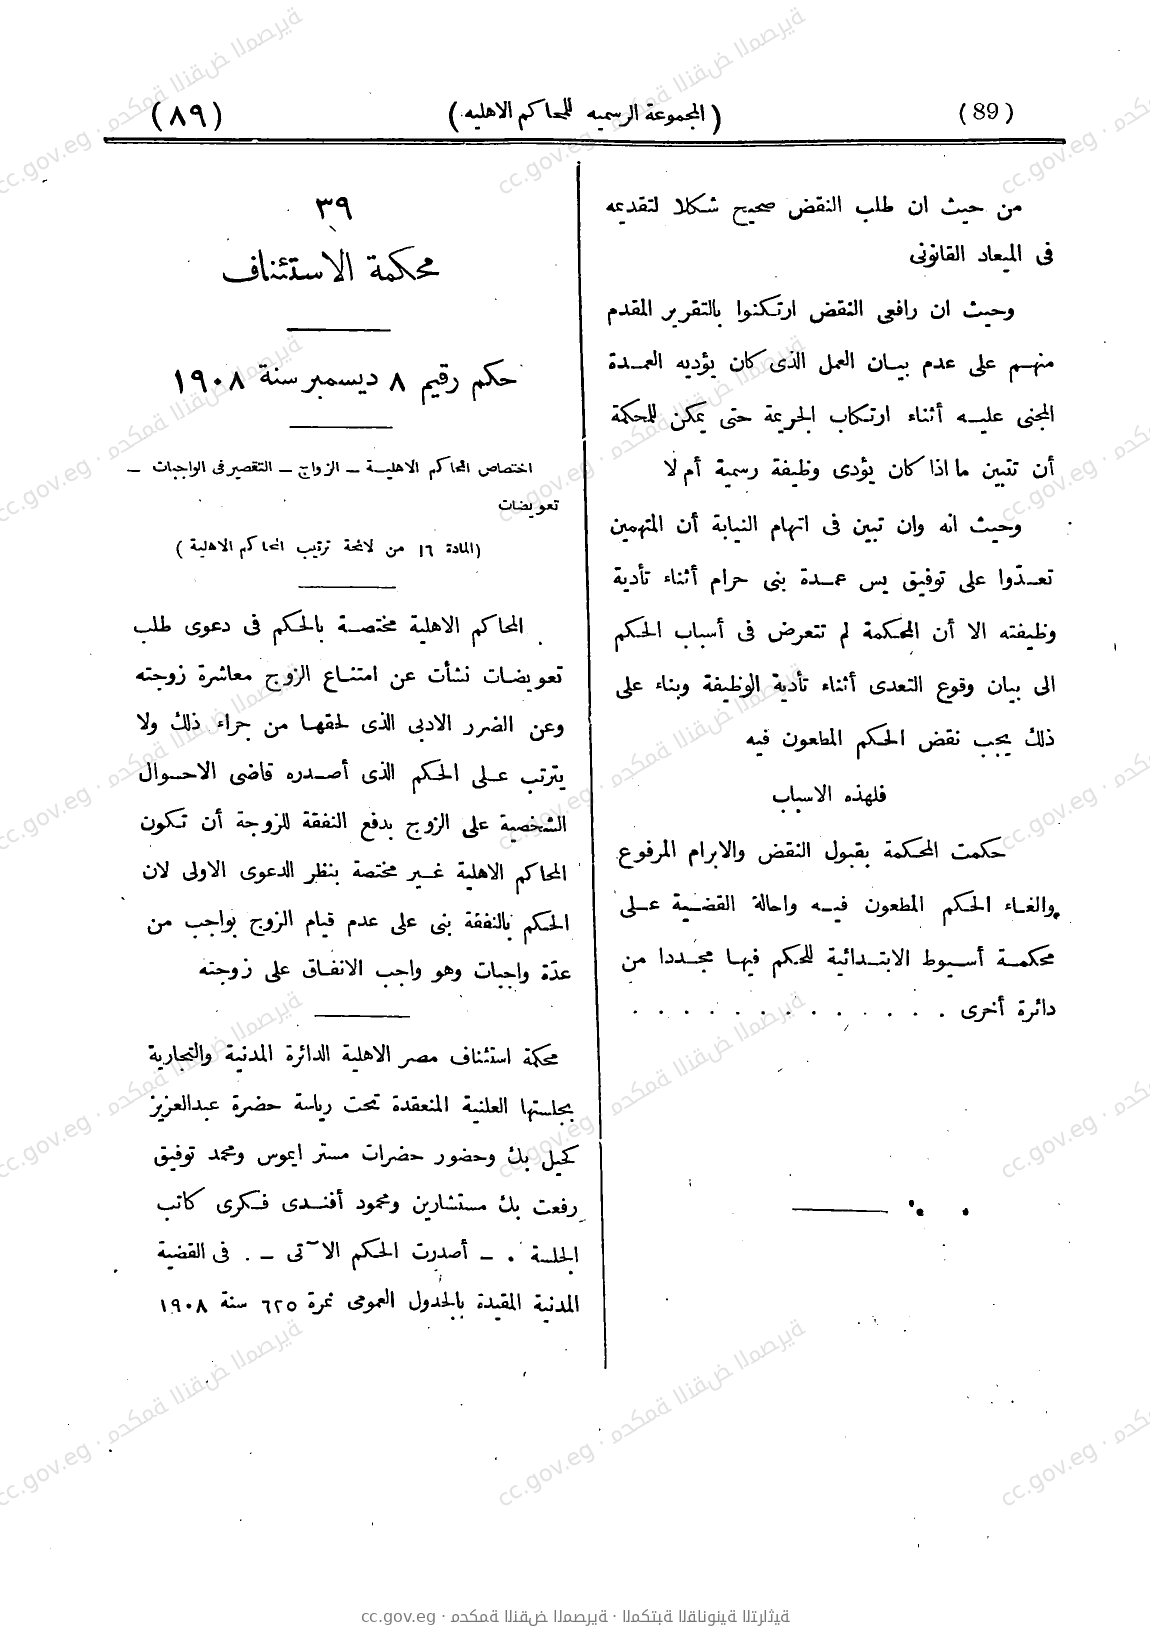 (89)
(المجموعة الرسميه للمحاكم الاهليه)
(٨٩)
من حيث ان طلب النقض صحيح شكلا لتقديمه
فى الميعاد القانونى
وحيث ان رافعى النقض ارتكنوا بالتقرير المقدم
منهم على عدم بيان العمل الذى كان يؤديه العمدة
المجنى عليه أثناء ارتكاب الجريمة حتى يمكن للمحكمة
أن تتبين ما اذا كان يؤدى وظيفة رسمية أم لا
وحيث انه وان تبين فى اتهام النيابة أن المتهمين
تعدّوا على توفيق يس عمدة بنى حرام أثناء تأدية
وظيفته الا أن المحكمة لم تتعرض فى أسباب الحكم
الى بيان وقوع التعدى أثناء تأدية الوظيفة وبناء على
ذلك يجب نقض الحكم المطعون فيه
فلهذه الاسباب
حكمت المحكمة بقبول النقض والابرام المرفوع
والغاء الحكم المطعون فيه واحالة القضية على
محكمة أسيوط الابتدائية للحكم فيها مجددا من
دائرة أخرى . . . . . . . . . . . . .
٣٩
محكمة الاستئناف
حكم رقيم ٨ ديسمبر سنة ١٩٠٨
اختصاص المحاكم الاهلية – الزواج – التقصير فى الواجبات –
تعويضات
(المادة ١٦ من لائحة ترتيب المحاكم الاهلية)
المحاكم الاهلية مختصة بالحكم فى دعوى طلب
تعويضات نشأت عن امتناع الزوج معاشرة زوجته
وعن الضرر الادبى الذى لحقها من جراء ذلك ولا
يترتب على الحكم الذى أصدره قاضى الاحوال
الشخصية على الزوج بدفع النفقة للزوجة أن تكون
المحاكم الاهلية غير مختصة بنظر الدعوى الاولى لان
الحكم بالنفقة بنى على عدم قيام الزوج بواجب من
عدّة واجبات وهو واجب الانفاق على زوجته
محكمة استئناف مصر الاهلية الدائرة المدنية والتجارية
بجلستها العلنية المنعقدة تحت رياسة حضرة عبدالعزيز
كحيل بك وحضور حضرات مستر ايموس ومحمد توفيق
رفعت بك مستشارين ومحمود أفندى فكرى كاتب
الجلسة . – أصدرت الحكم الآتى – . فى القضية
المدنية المقيدة بالجدول العمومى نمرة ٦٢٥ سنة ١٩٠٨
cc.gov.eg · محكمة النقض المصرية · المكتبة القانونية التراثية